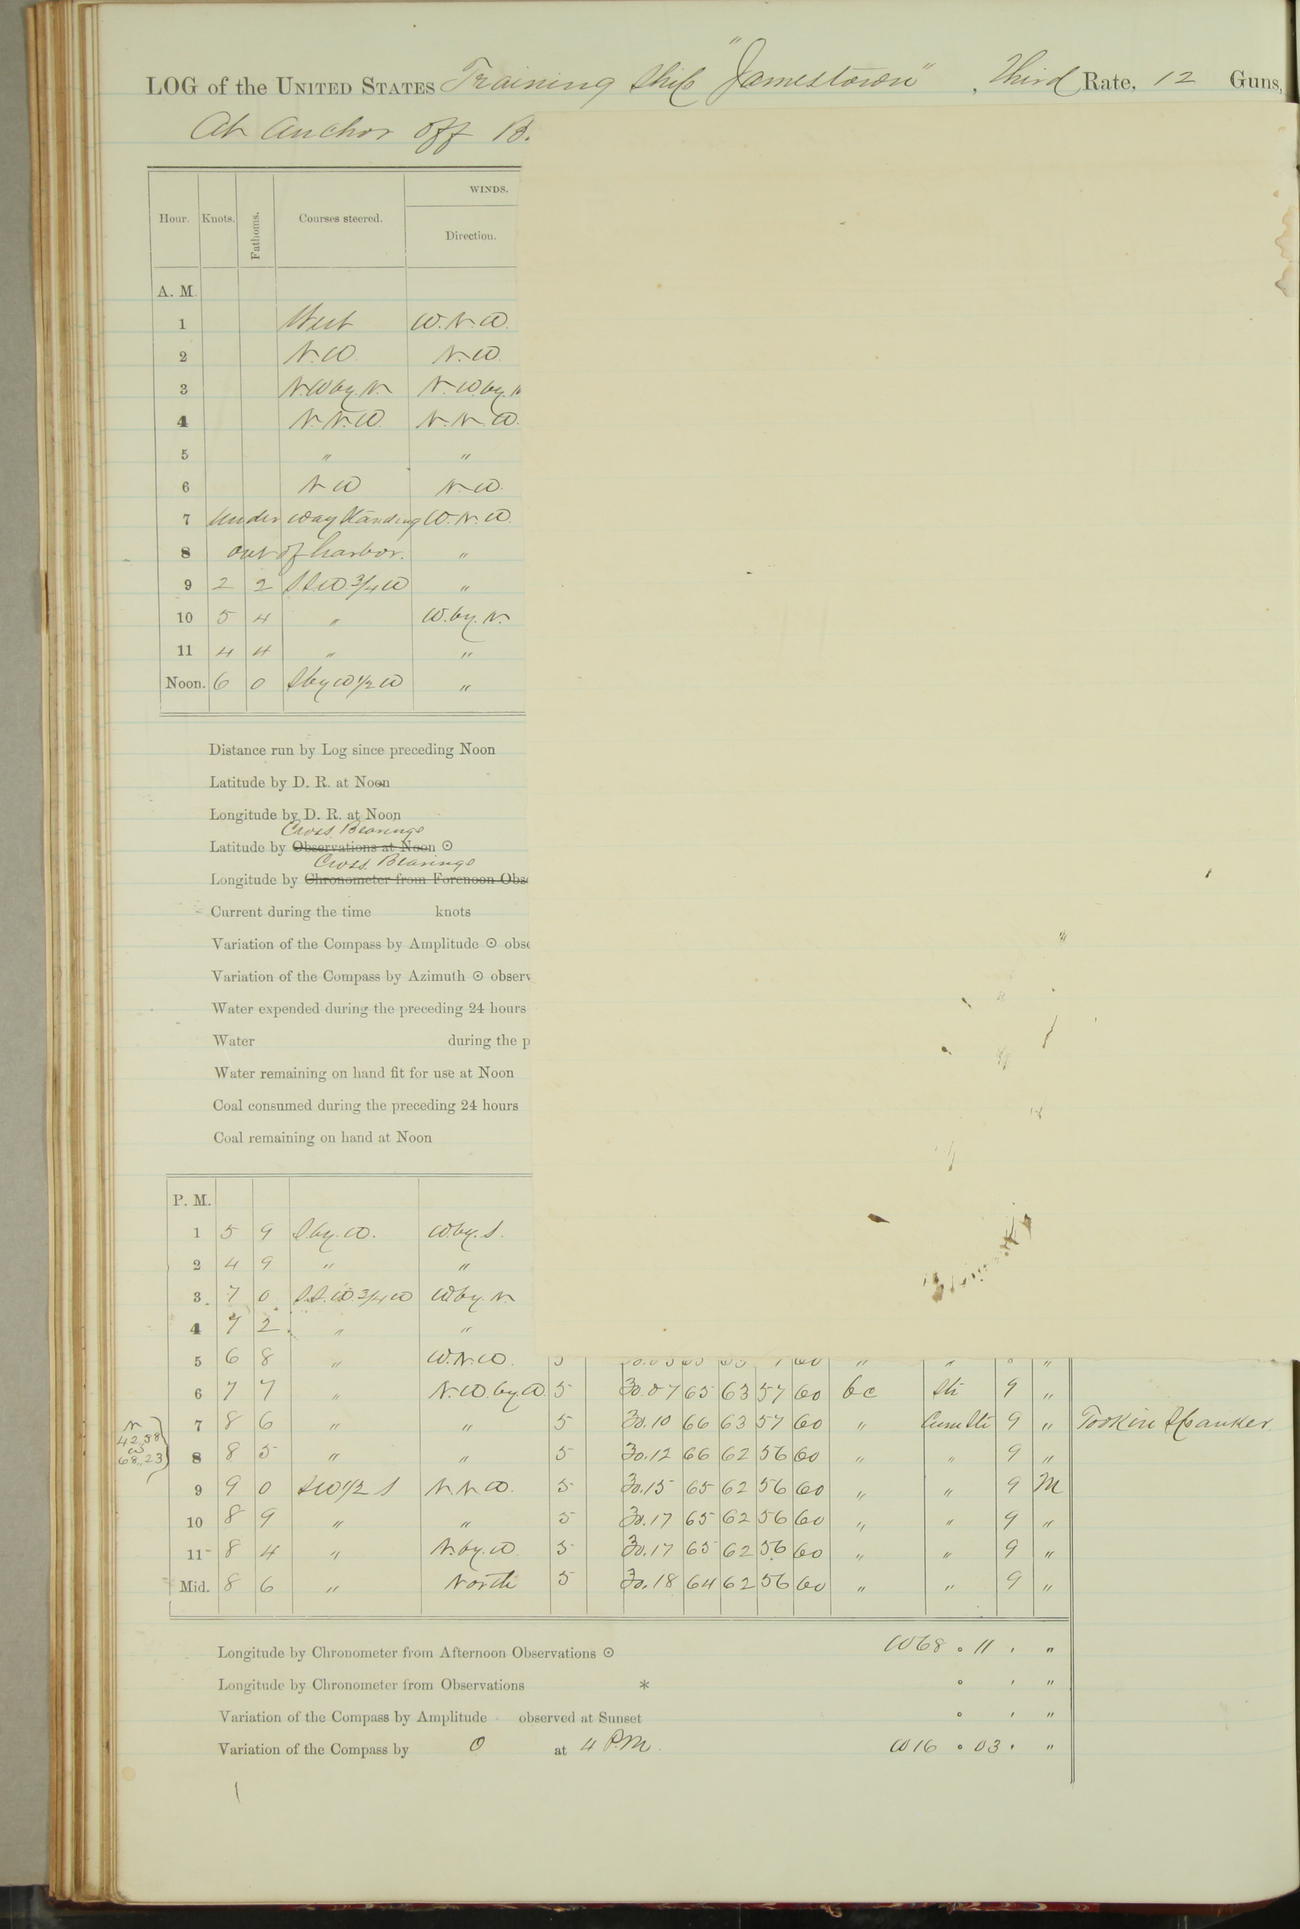 LOG of the UNITED STATES Training Ship "Jamestown", Third Rate, 12 Guns,
At anchor off B.
WINDS.
Hour. Knots. Fathoms. Courses steered. Direction.
A. M.
1 West W.N.W.
2 N.W. N.W.
3 N.W by. N. N.W by. N
4 N.N.W. N.N.W.
5 " "
6 N W N.W.
7 Under way Standing W.N.W.
8 out of harbor. "
9 2 2 S.S.W. 3/4 W "
10 5 4 " W. by. N.
11 4 4 " "
Noon. 6 0 S by W 1/2 W "
Distance run by Log since preceding Noon
Latitude by D. R. at Noon
Longitude by D. R. at Noon
Cross Bearings
Latitude by Observations at Noon ⊙
Cross Bearings
Longitude by Chronometer from Forenoon Obs
Current during the time knots
Variation of the Compass by Amplitude ⊙ obse
Variation of the Compass by Azimuth ⊙ observ
Water expended during the preceding 24 hours
Water during the p
Water remaining on hand fit for use at Noon
Coal consumed during the preceding 24 hours
Coal remaining on hand at Noon
P. M.
1 5 9 S. by. W. W. by. S.
2 4 9 " "
3 7 0 S.S.W. 3/4 W W. by. N
4 7 2 " "
5 6 8 " W.N.W. 5 60 " " "
6 7 7 " N.W. by. W 5 30.07 65 63 57 60 bc Str 9 "
7 8 6 " " 5 30.10 66 63 57 60 " Cum Str 9 " Took in Spanker.
N
42,,58
W
68,,23
8 8 5 " " 5 30.12 66 62 56 60 " " 9 "
9 9 0 SW 1/2 S N.N.W. 5 30.15 65 62 56 60 " " 9 M
10 8 9 " " 5 30.17 65 62 56 60 " " 9 "
11 8 4 " N. by. W 5 30.17 65 62 56 60 " " 9 "
Mid. 8 6 " North 5 30.18 64 62 56 60 " " 9 "
Longitude by Chronometer from Afternoon Observations ⊙ W 68 ° 11 ' "
Longitude by Chronometer from Observations * ° ' "
Variation of the Compass by Amplitude observed at Sunset ° ' "
Variation of the Compass by O at 4 P.M. W 16 ° 03 ' "